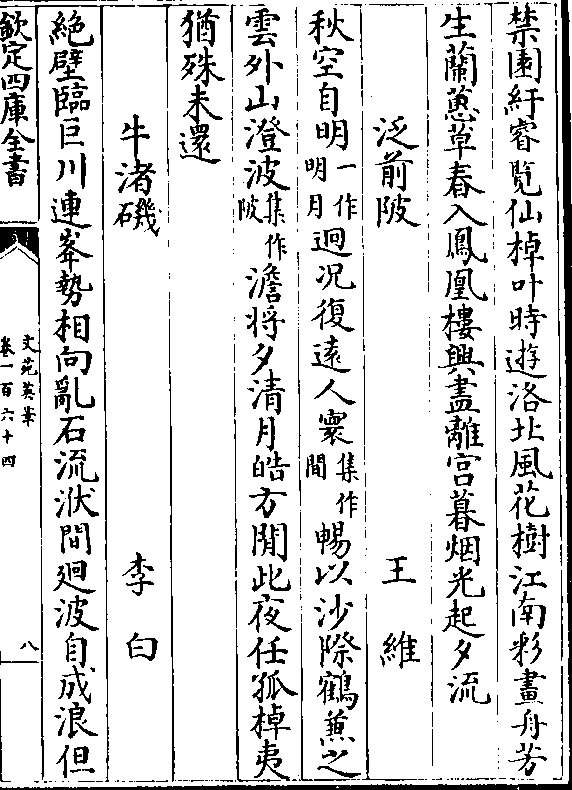 禁園紆睿覧仙棹叶時遊洛北風花樹江南彩畫舟芳
生蘭蕙草春入鳳凰樓興盡離宫暮烟光起夕流
泛前陂 王維
秋空自明一作明月迥况復遠人寰集作間暢以沙際鶴兼之
雲外山澄波集作陂澹将夕清月皓方閒此夜任孤棹夷
猶殊未還
牛渚磯 李白
絶壁臨巨川連峯勢相向亂石流洑間廻波自成浪但
欽定四庫全書
文苑英華
卷一百六十四
八